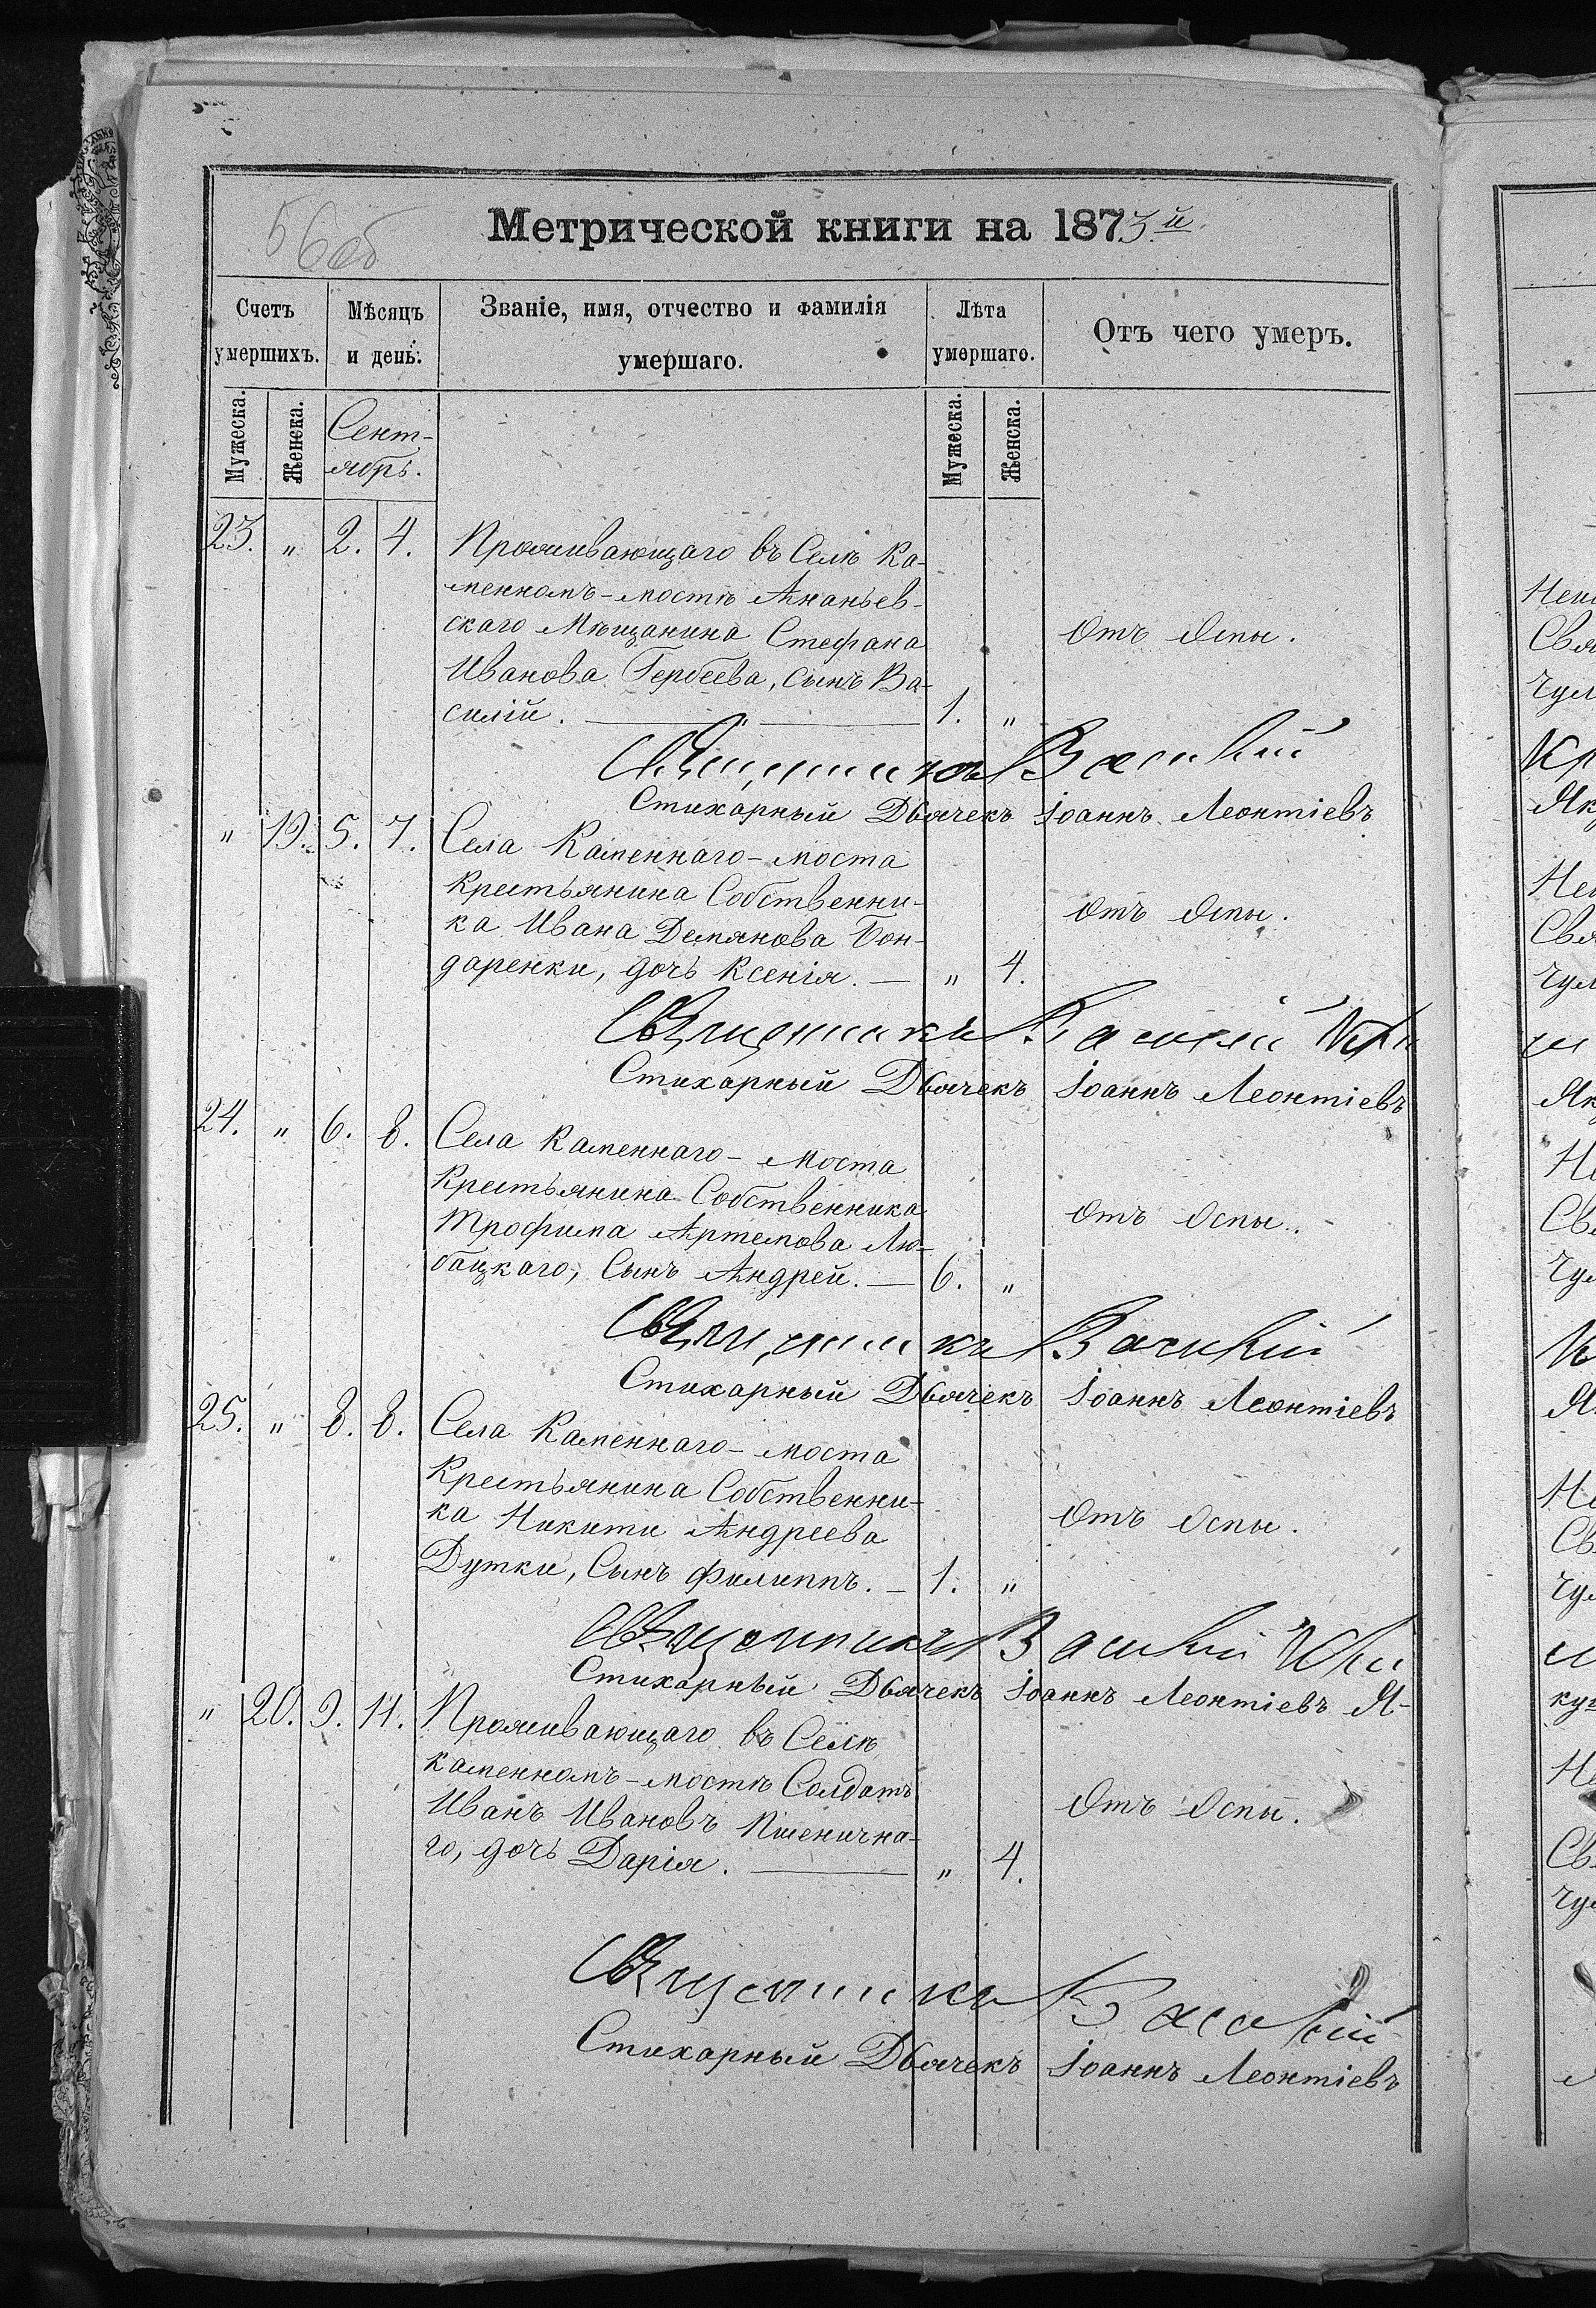 56об
Метрической книги на 1873й.
Счетъ умершихъ.
Мѣсяцъ и день.
Званіе, имя, отчество и фамилія умершаго.
Лѣта умершаго.
Отъ чего умеръ.
Мужеска.
Женска.
Сент-
ябрь.
Мужеска.
Женска.
23. „ 2. 4. Проживающаго въ Селѣ Ка-
менномъ-мостѣ Ананьев-
скаго Мѣщанина Стефана
Отъ Оспы.
Иванова Гербеева, сынъ Ва-
силій. 1. „
Священникъ Василій
Стихарный Дьячекъ Іоаннъ Леонтіевъ
„ 19. 5. 7. Села Каменнаго-моста
Крестьянина Собственни-
Отъ Оспы.
ка Ивана Демянова Бон-
даренки, дочь Ксенія. „ 4.
Священникъ Василій
Стихарный Дьячекъ Іоаннъ Леонтіевъ
24. „ 6. 8. Села Каменнаго-Моста
Крестьянина Собственника
Отъ Оспы.
Трофима Артемова Лю-
бацкаго, Сынъ Андрей. 6. „
Священникъ Василій
Стихарный Дьячекъ Іоаннъ Леонтіевъ
25. „ 8. 8. Села Каменнаго-моста
Крестьянина Собственни-
ка Никити Андреева
Отъ Оспы.
Дутки, Сынъ Филиппъ. 1. „
Священникъ Василій
Стихарный Дьячекъ Іоаннъ Леонтіевъ Я-
„ 20. 9. 11. Проживающаго въ Селѣ
каменномъ-мостѣ Солдатъ
Отъ Оспы.
Иванъ Ивановъ Пшенична-
го, дочь Дарія. „ 4.
Священникъ Василій
Стихарный Дьячекъ Іоаннъ Леонтіевъ